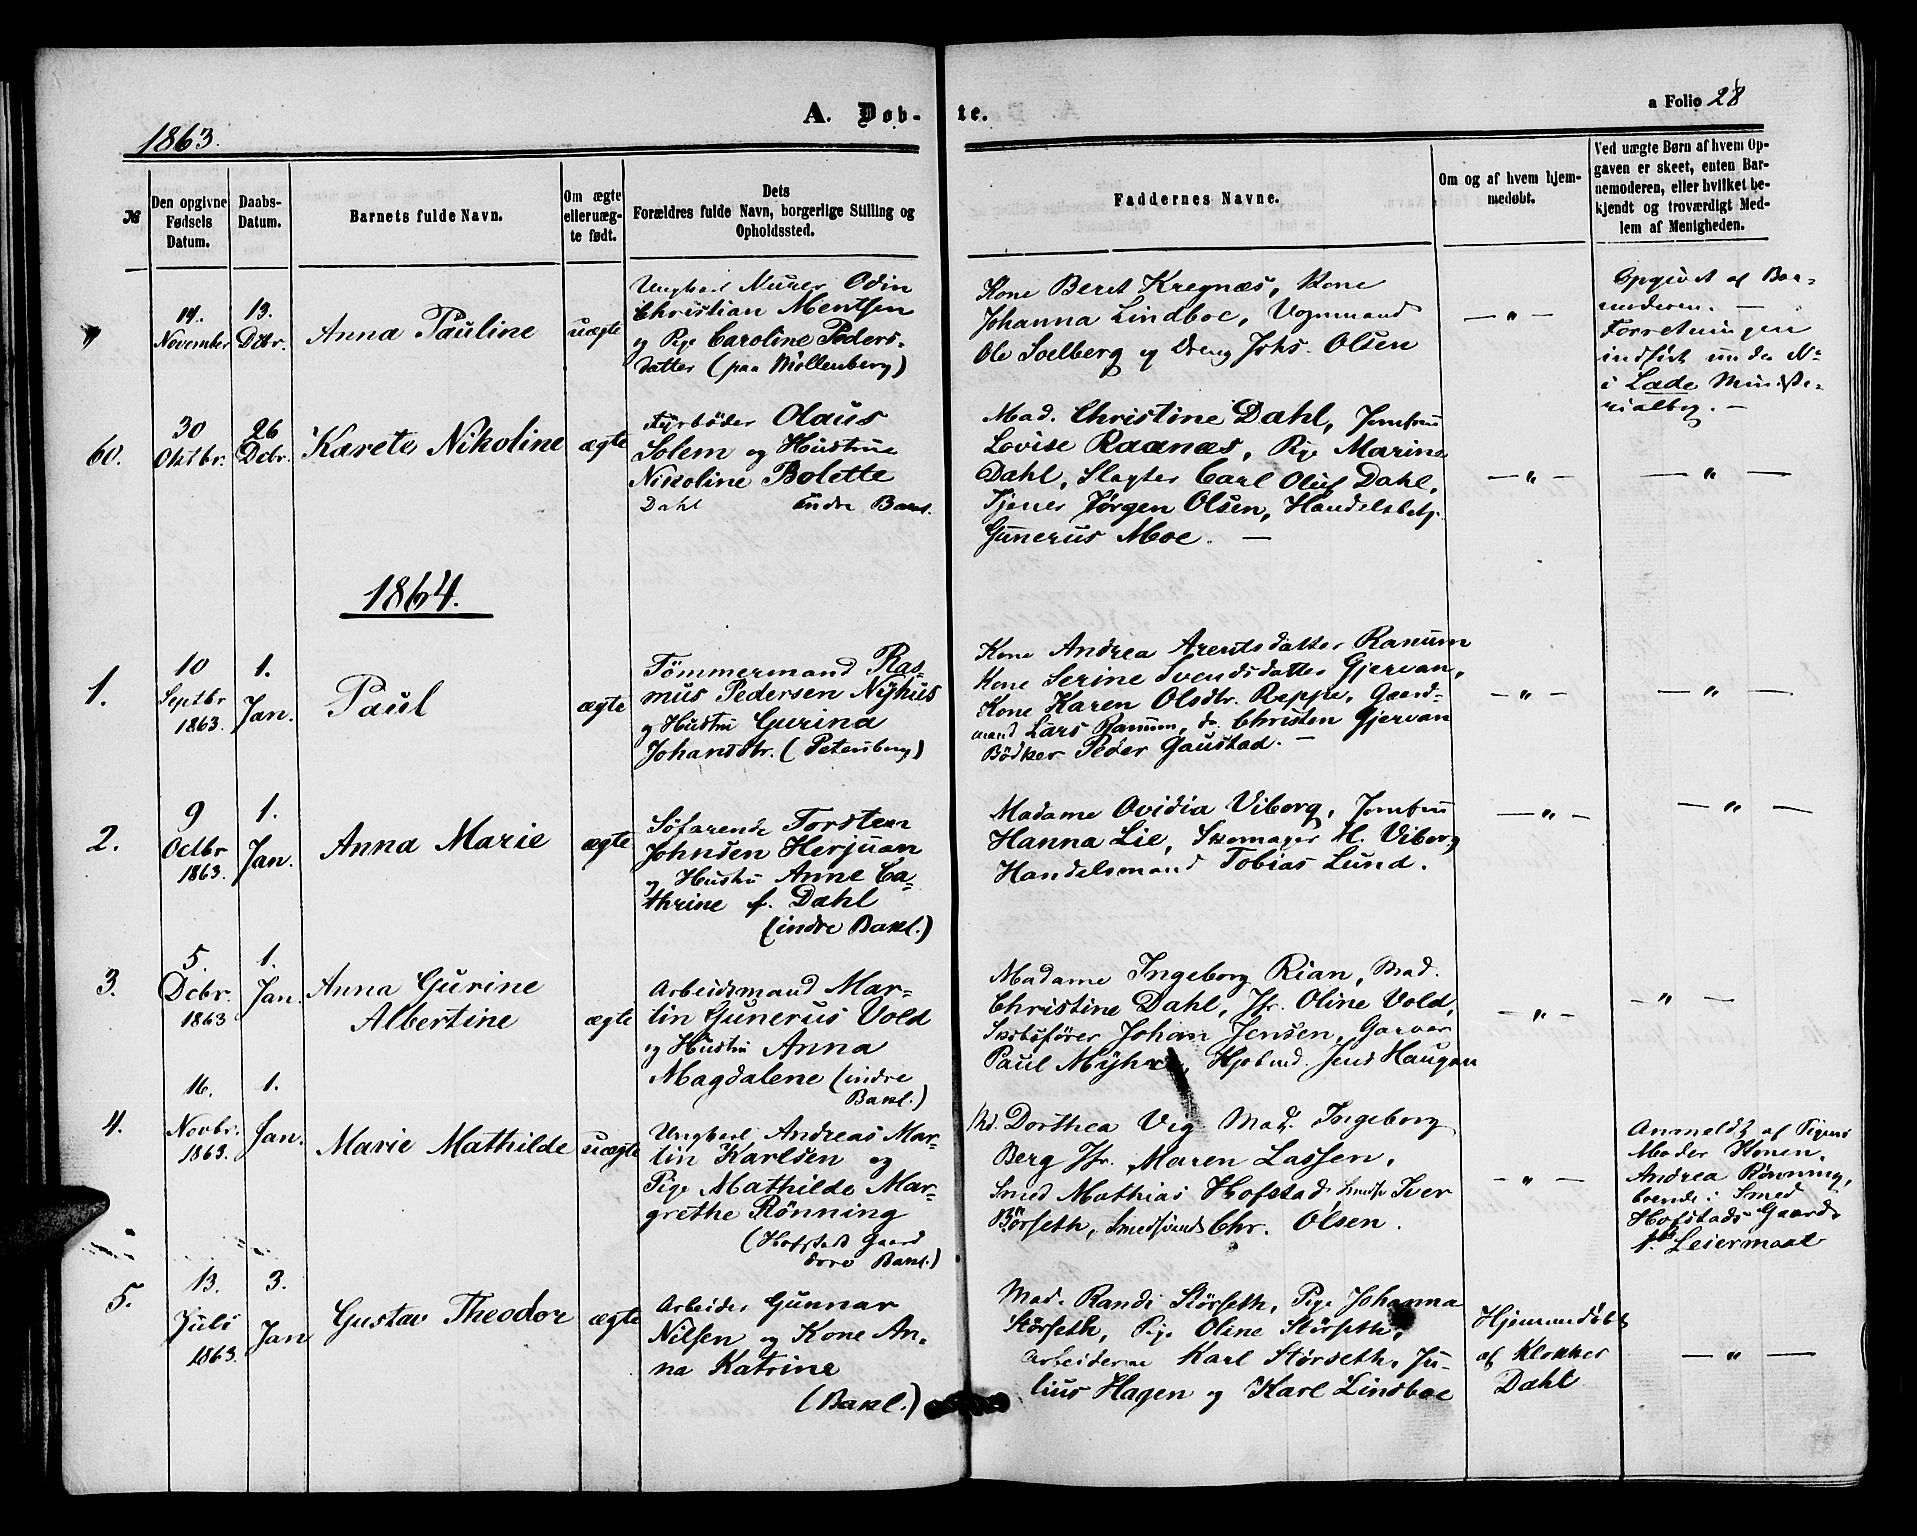 1863.
A. Døb-
te.
a Folio 28
№
Den opgivne
Fødsels
Datum.
Daabs-
Datum.
Barnets fulde Navn.
Om ægte
eller uæg-
te født.
Dets
Forældres fulde Navn, borgerlige Stilling og
Opholdssted.
Faddernes Navne.
Om og af hvem hjem-
medøbt.
Ved uægte Børn af hvem Op-
gaven er skeet, enten Bar-
nemoderen, eller hvilket be-
kjendt og troværdigt Med-
lem af Menigheden.
November
13.
Dcbr.
Anna Pauline
uægte
Ungkarl Murer Odin
Christian Mentsen
og Pige Caroline Peders-
datter (paa Möllenberg)
Kone Beret Kregnæs, Kone
Johanna Lindboe, Vognmand
Ole Solberg og Dreng Johs. Olsen
— „ —
Opgivet af Bar-
nemoderen. —
Forretningen
indført under N-
i Lade Ministe-
rialbog. —
60.
30
Oktbr.
26
Dcbr.
Karete Nikoline
ægte
Fyrbøder Olaus
Solem og Hustrue
Nikoline Bolette
Dahl indre Bakl.
Mad. Christine Dahl, Jomfru
Lovise Raanæs, Pige Marine
Dahl, Slagter Carl Oluf Dahl,
Tjener Jørgen Olsen, Handelsbetj.
Gunerus Moe. —
— „ —
— „ —
1864.
1.
10
Septbr
1863.
1.
Jan.
Paul
ægte
Tömmermand Ras-
mus Pedersen Nyhus
og Hustru Gurina
Johansdtr. (Petersberg)
Kone Andrea Arentsdatter Ranum
Kone Serine Svendsdatter Gjervan,
Kone Karen Olsdtr. Reppe, Gaard-
mand Lars Ranum, do. Christen Gjervan
Bödker Peder Gaustad. —
— „ —
— „ —
2.
9
Octbr
1863.
1.
Jan.
Anna Marie
ægte
Söfarende Torsten
Johnsen Herjuan
og Hustru Anne Ca-
thrine f. Dahl
(indre Bakl.)
Madame Ovidia Viborg, Jomfru
Hanna Lie, Skomager H. Viborg
Handelsmand Tobias Lund.
— „ —
— „ —
3.
5.
Dcbr.
1863
1.
Jan.
Anna Gurine
Albertine
ægte
Arbeidsmand Mar-
tin Gunerus Vold
og Hustru Anna
Magdalene (indre
Bakl.)
Madame Ingeborg Rian, Mad.
Christine Dahl, Jfr. Oline Vold,
Skibsfører Johan Jensen, Garver
Paul Myhre, Jens Haugan
— „ —
— „ —
4.
16.
Novbr.
1863.
1.
Jan.
Marie Mathilde
uægte
Ungkarl Andreas Mar-
tin Karlsen og
Pige Mathilde Mar-
grethe Rönning
(Hofstads Gaard
Bakl.)
Md. Dorthea Vig, Mad. Ingeborg
Berg Jfr. Maren Lassen,
Smed Mathias Hofstad, Smedsv. Iver
Børseth, Smedsvend Chr. Olsen.
— „ —
Anmeldt af Pigens
Moder Konen
Andrea Rönning,
boende i Smed
Hofstads Gaard
1ste Leiermaal
5.
13.
Juli
1863.
3.
Jan
Gustav Theodor
ægte
Arbeider Gunnar
Nilsen og Kone An-
na Katrine
(Bakl.)
Mad. Randi Störseth, Pige Johanna
Störseth, Pige Oline Störseth,
Arbeiderne Karl Störseth, Ju-
lius Hagen og Karl Lindboe
Hjemmedøbt
af Klokker
Dahl
— „ —